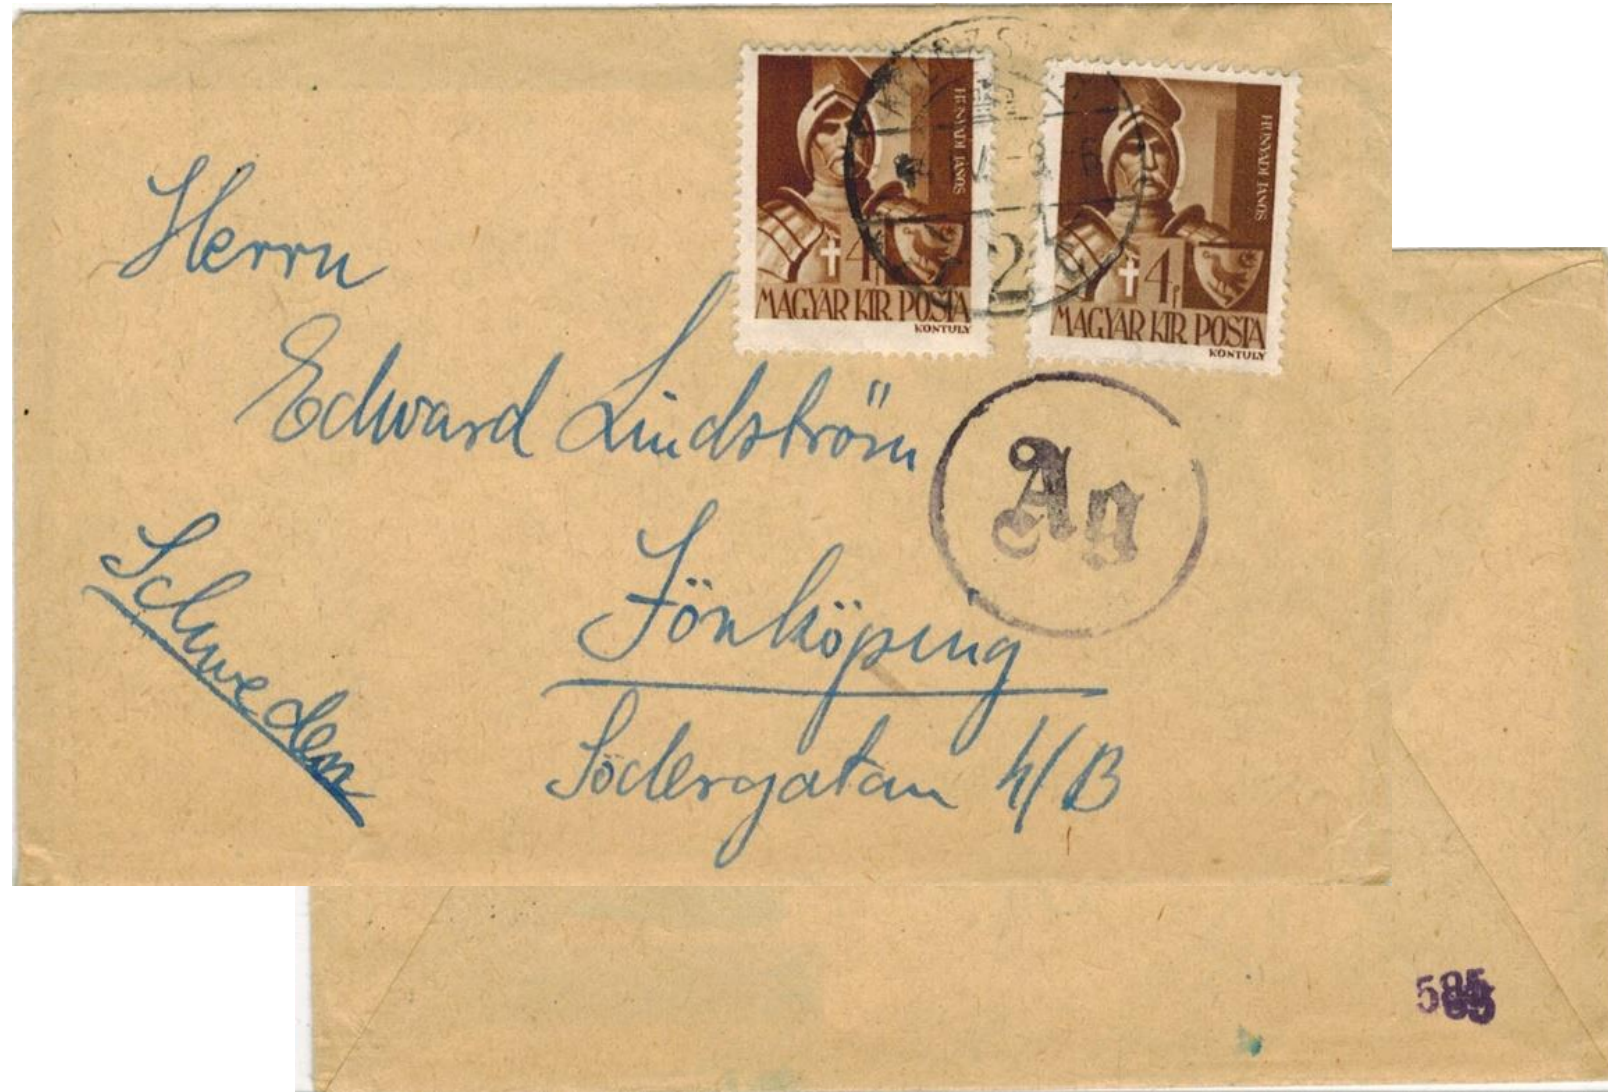 HUNYADI JÁNOS
4f
MAGYAR KIR. POSTA
KONTULY
HUNYADI JÁNOS
4f
MAGYAR KIR. POSTA
KONTULY
2
Herrn
Edward Lindström
Ag
Jönköping
Södergatan 4/B
Schweden
585